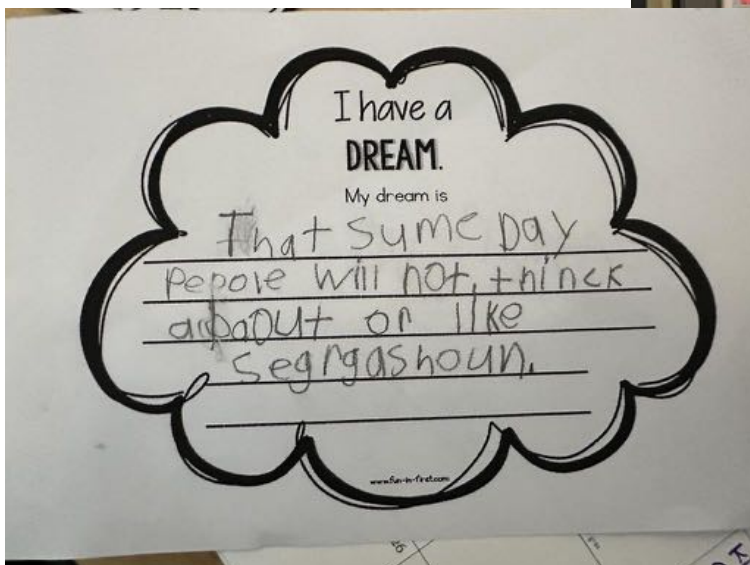 I have a
DREAM.
My dream is
That sume Day
pepole will not thinck
abaout or like
segrgashoun.
www.fun-in-first.com